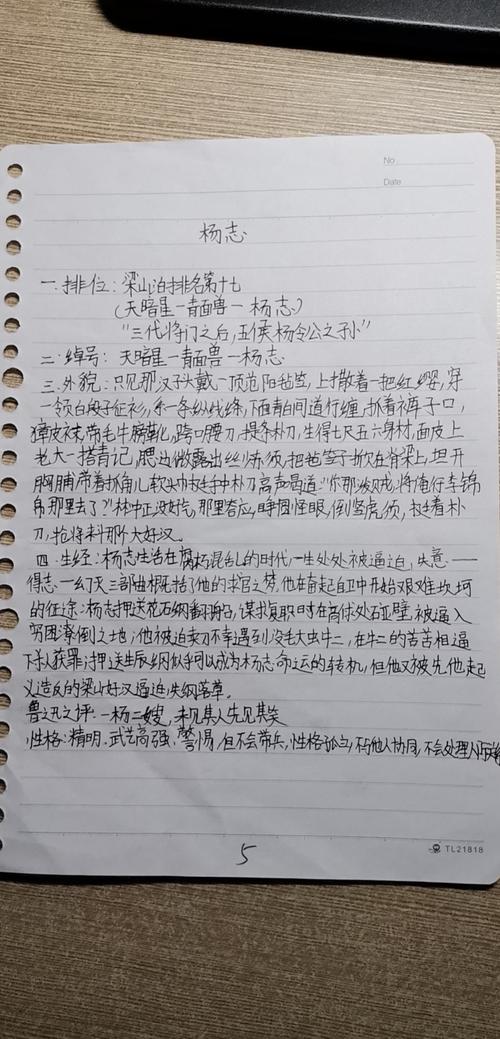 No
Date
杨志
一·排位：梁山泊排名第十七
(天暗星一青面兽一杨志)
"三代将门之后,五侯杨令公之孙"
二·绰号：天暗星一青面兽一杨志
三·外貌：只见那汉子头戴一顶范阳毡笠,上撒着一把红缨,穿
一领白段子征衫,系一条纵线绦,下面青白间道行缠,抓着裤子口,
獐皮袜,带毛牛膀靴,跨口腰刀,提条朴刀,生得七尺五六身材,面皮上
老大一搭青记,腮边微露出些赤须,把毡笠子掀在脊梁上,坦开
胸脯带着抓角儿软头巾挺手中朴刀高声喝道:"你那泼贼,将俺行李财
帛那里去了?"林冲正没好气,那里答应,睁圆怪眼,倒竖虎须,挺着朴
刀,抢将来斗那个大好汉。
四·生经：杨志生活在腐朽混乱的时代,一生处处被逼迫,失意——
得志一幻灭三部曲概括了他的求官之梦,他在奋起自卫中开始艰难坎坷
的征途:杨志押送花石纲翻了船,谋求复职时在高俅处碰壁,被逼入
穷困潦倒之地;他被迫卖刀不幸遇到没毛大虫牛二,在牛二的苦苦相逼
下杀人获罪;押送生辰纲似乎可以成为杨志命运的转机,但他又被先他起
义造反的梁山好汉逼迫失纲落草。
鲁迅之评.一杨二嫂,未见其人先见其笑
性格:精明.武艺高强、警惕,但不会带兵,性格孤立,不与他人协同,不会处理人际关
5
TL21818